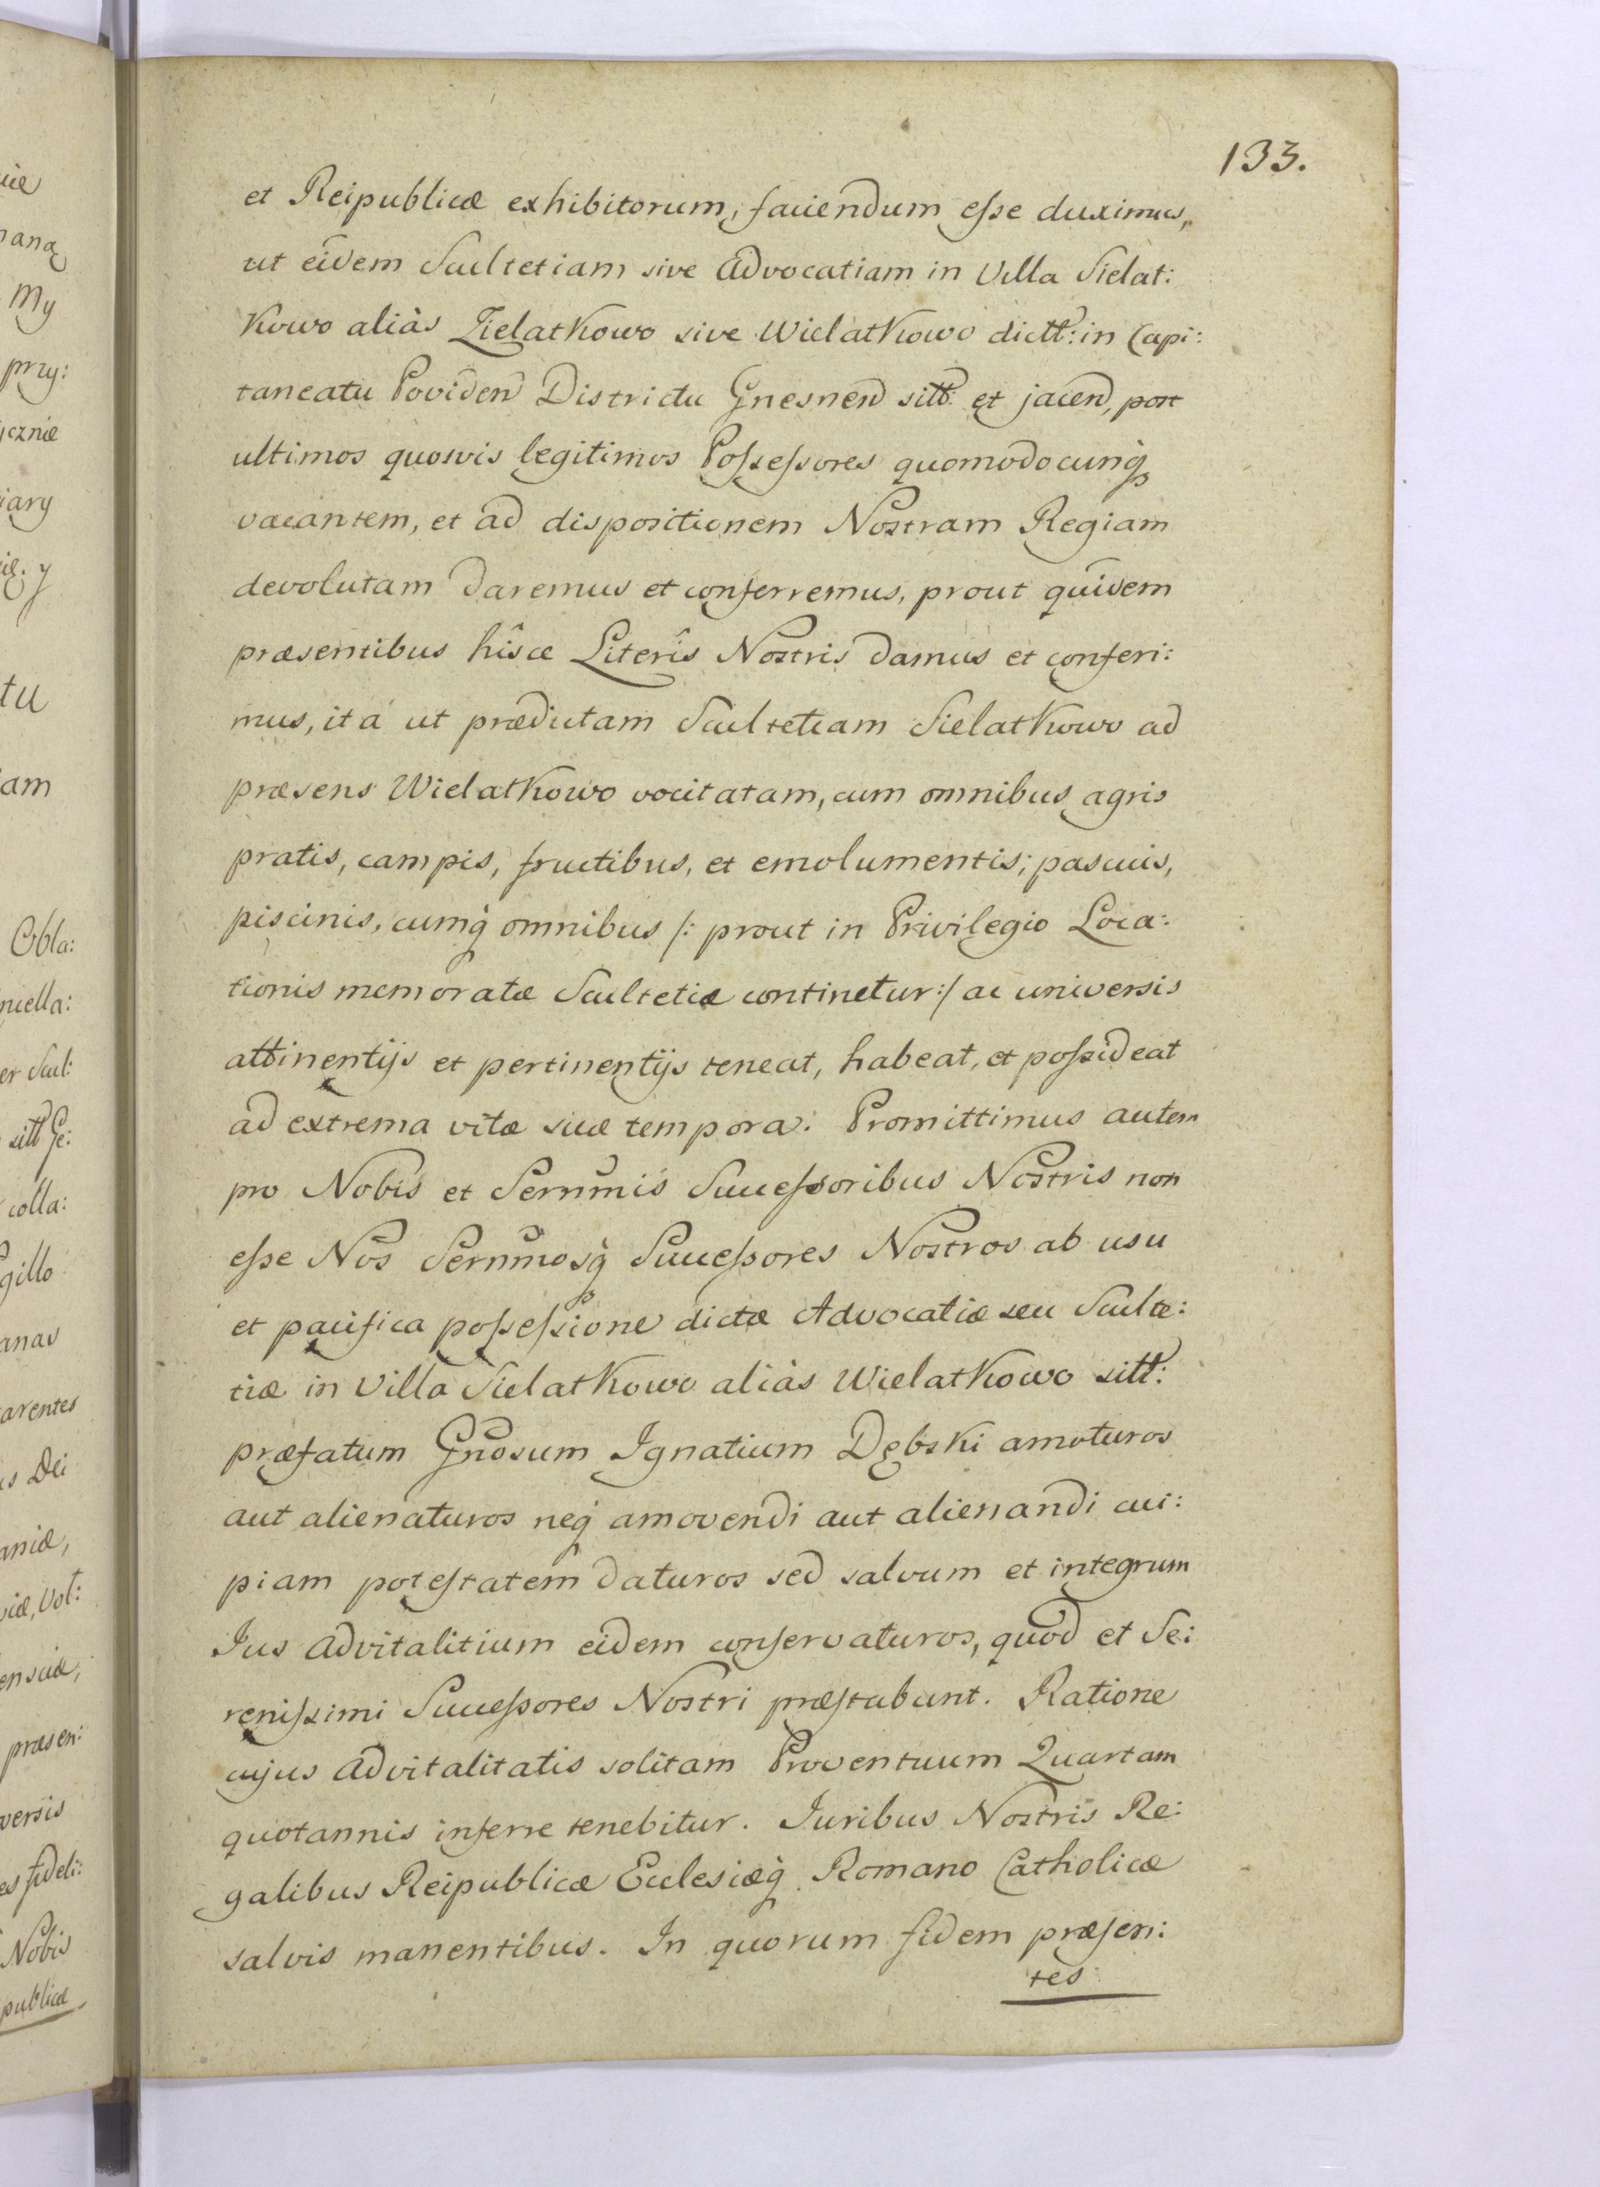 133.
et Reipublicæ exhibitorum, faciendum eſse duximus,
ut eidem Scultetiam sive Advocatiam in Villa Sielat:
kowo aliàs Zielatkowo sive Wielatkowo dictt: in Capi:
taneatu Poviden Districtu Gnesnen sitt: et jacen, post
ultimos quosvis legitimos Poſseſsores quomodocunq
vacantem, et ad dispositionem Nostram Regiam
devolutam daremus et conferremus, prout quidem
præsentibus hîsce Literîs Nostris damus et conferi:
mus, ita ut prædictam Scultetiam Sielatkowo ad
præsens Wielatkowo vocitatam, cum omnibus agris
pratis, campis, fructibus, et emolumentis; pascuis,
piscinis, cumq omnibus /: prout in Privilegio Loca:
tionis memoratæ Scultetiæ continetur :/ ac universis
attinentijs et pertinentijs teneat, habeat, et poſsideat
ad extrema vitæ suæ tempora. Promittimus autem
pro Nobis et Sernmis Succeſsoribus Nostris non
eſse Nos Sernmosq Succeſsores Nostros ab usu
et pacifica poſseſsione dictæ Advocatiæ seu Sculte:
tiæ in Villa Sielatkowo aliàs Wielatkowo sitt:
præfatum Gnosum Ignatium Dębski amoturos
aut alienaturos neq amovendi aut alienandi cui:
piam poteſtatem daturos sed salvum et integrum
Jus Advitalitium eidem conſervaturos, quod et Se:
reniſsimi Succeſsores Nostri præſtabunt. Ratione
cujus Advitalitatis solitam Proventuum Quartam
quotannis inferre tenebitur. Juribus Nostris Re:
galibus Reipublicæ Ecclesiæq Romano Catholicæ
salvis manentibus. In quorum fidem præſen:
tes